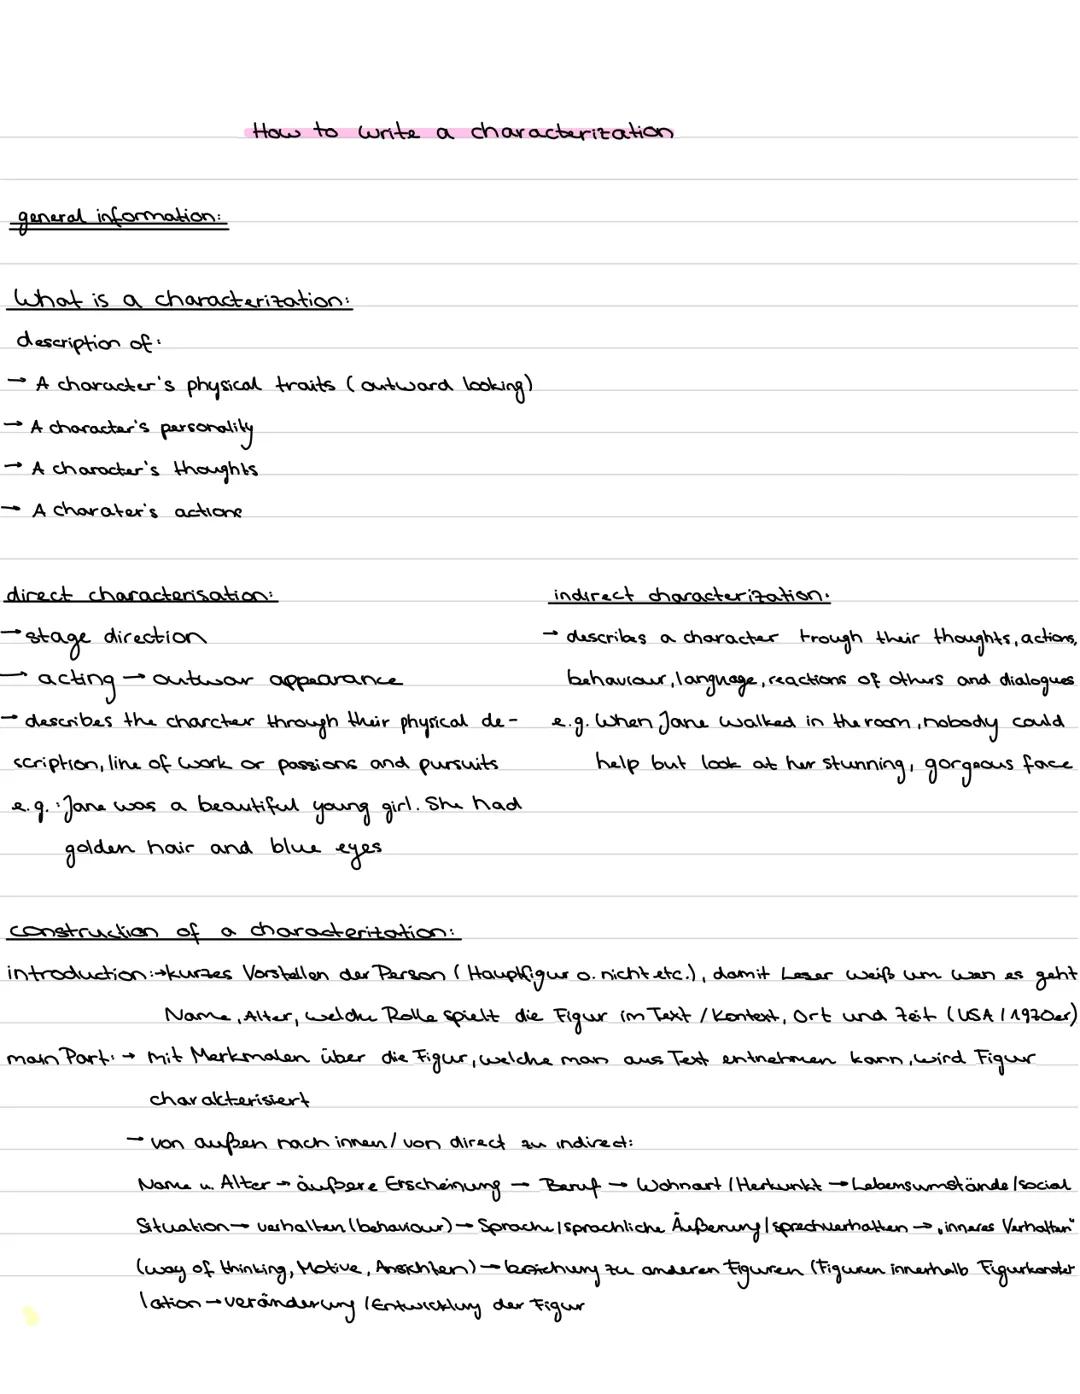 How to write a characterization
general information:
What is a characterization:
description of:
→ A character's physical traits (outward looking)
→ A character's personality
→ A character's thoughts
→ A charater's actions
direct characterisation:
→ stage direction
→ acting → outwar appearance
→ describes the charcter through their physical de-
scription, line of work or passions and pursuits
e.g.: Jane was a beautiful young girl. She had
golden hair and blue eyes
indirect characterization:
→ describes a character trough their thoughts, actions,
behaviour, language, reactions of others and dialogues
e.g. When Jane walked in the room, nobody could
help but look at her stunning, gorgeous face
construction of a characterization:
introduction: → kurzes Vorstellen der Person (Hauptfigur o. nicht etc.), damit Leser weiß um wen es geht
Name, Alter, welche Rolle spielt die Figur im Text / Kontext, Ort und Zeit (USA / 1970er)
main Part: → mit Merkmalen über die Figur, welche man aus Text entnehmen kann, wird Figur
charakterisiert
→ von außen nach innen / von direct zu indirect:
Name u. Alter → äußere Erscheinung → Beruf → Wohnart / Herkunft → Lebensumstände / social
Situation → verhalten (behaviour) → Sprache / sprachliche Äußerung / sprechverhalten → „inneres Verhalten"
(way of thinking, Motive, Ansichten) → beziehung zu anderen Figuren (Figuren innerhalb Figurkonstel
lation → veränderung / Entwicklung der Figur